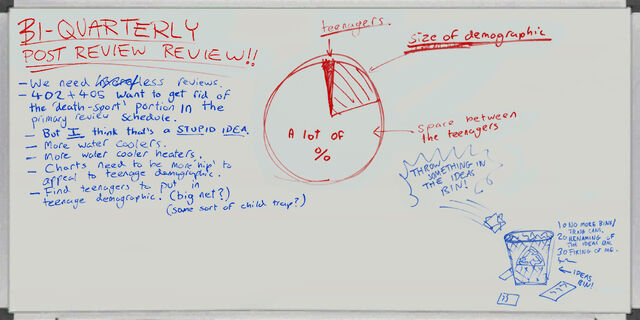 BI-QUARTERLY
POST REVIEW REVIEW!!
- We need less reviews.
- 402 + 405 want to get rid of
the 'death-sport' portion in the
primary review schedule.
- But I think that's a STUPID IDEA.
- More water coolers.
- More water cooler heaters.
- Charts need to be more 'hip' to
appeal to teenage demographic.
- Find teenagers to put in
teenage demographic. (big net?)
(some sort of child trap?)
teenagers.
size of demographic
A lot of
%
space between
the teenagers
THROW
SOMETHING IN
THE IDEAS
BIN!
NO MORE
TRASH CANS.
RENAMING OF
THE IDEAS
FIRING OF ME.
IDEAS
BIN!